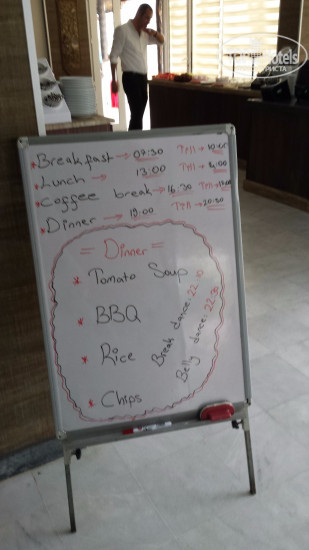 * Breakfast → 07:30 Till → 10:00
* Lunch → 13.00 Till → 14:00
* Coffee break → 16:30 Till → 17:00
* Dinner → 19.00 Till → 20:30
= Dinner =
* Tomato Soup
* BBQ
* Rice
* Chips
Break dance: 22:10
Belly dance: 22:30